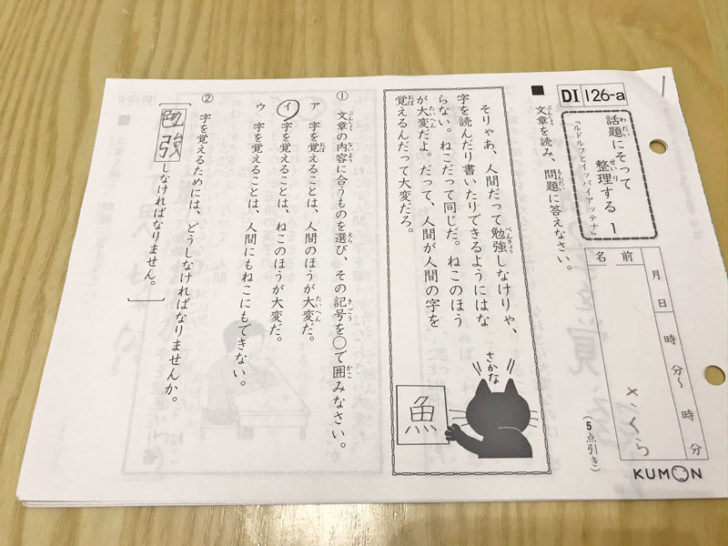 DI 126-a
話題にそって
整理する 1
『ルドルフとイッパイアッテナ』
月 日 時 分〜 時 分
名前
さくら
(5点引き)
KUMON
■ 文章を読み、問題に答えなさい。
そりゃあ、人間だって勉強しなけりゃ、
字を読んだり書いたりできるようにはな
らない。ねこだって同じだ。ねこのほう
が大変だよ。だって、人間が人間の字を
覚えるんだって大変だろ。
さかな
魚
① 文章の内容に合うものを選び、その記号を○で囲みなさい。
ア 字を覚えることは、人間のほうが大変だ。
イ 字を覚えることは、ねこのほうが大変だ。
ウ 字を覚えることは、人間にもねこにもできない。
② 字を覚えるためには、どうしなければなりませんか。
勉強しなければなりません。